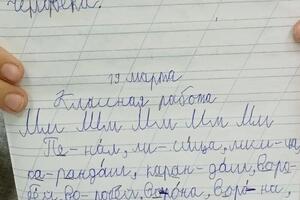 человека.
19 марта
Классная работа
Мм Мм Мм Мм Мм
Пе-нал, ли-сица, лиси-ца,
ка-рандаш, каран-даш, воро-
бей, во-робей, ворона, воро-на,